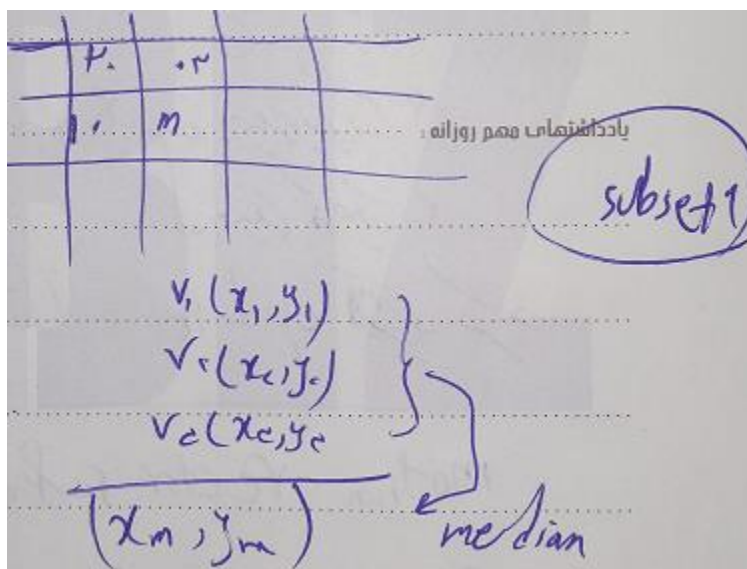 ۲۰ ۰۳
۱۰ m
یادداشتهای مهم روزانه :
subset 1
V₁ (x₁, y₁)
V۲ (x۲, y۲)
V۳ (x۳, y۳
(xₘ, yₘ)
median